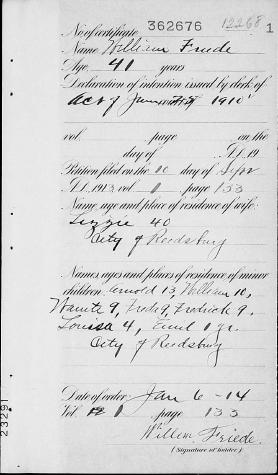 362676 12268 1
No. of certificate
Name William Friede
Age 41 years
Declaration of intention issued by clerk of
Act of 1910
vol. page on the
day of A.D. 19
Petition filed on the 10 day of Sept
A.D. 1913 vol 1 page 133
Name, age and place of residence of wife:
Lizzie 40
City of Reedsburg
Names, ages and places of residence of minor
children: Arnold 13, William 10,
9, Fred 9, Fredrick 9,
Louisa 4, Emil 1 yr.
City of Reedsburg
Date of order Jan 6 - 14
Vol. 1 page 133
Willem Friede
(Signature of holder)
23291